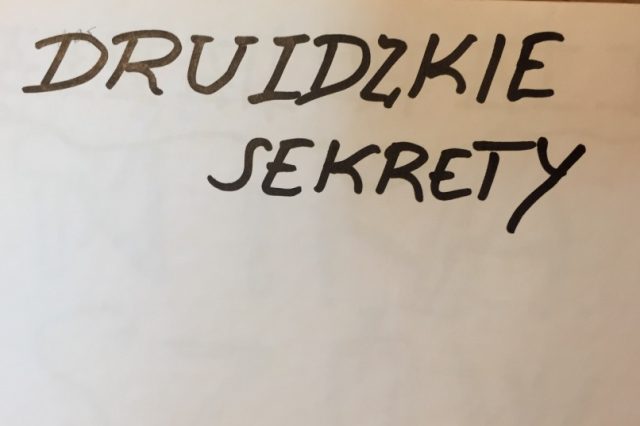 DRUIDZKIE
SEKRETY